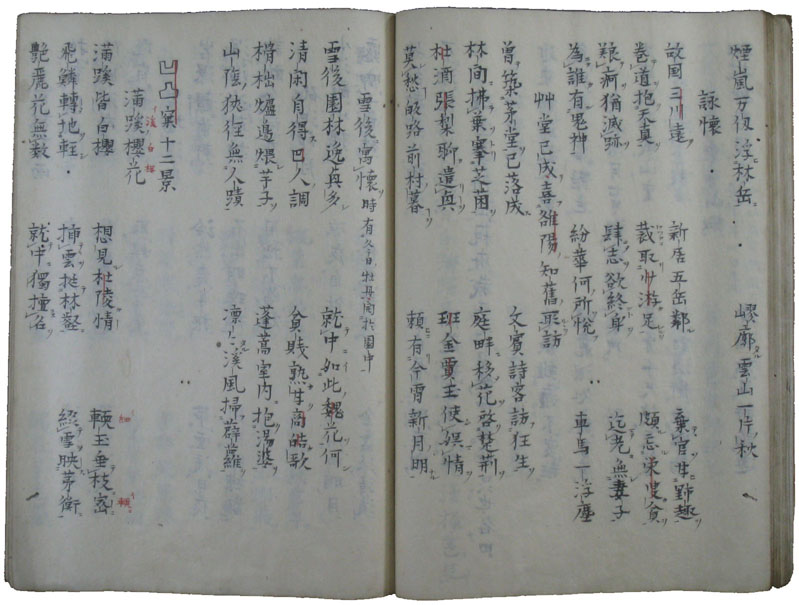 煙嵐万仭浮林岳 嵺廓雲山一片秋
詠懐
故国三川遠 新居五岳鄰 棄官甘野趣
巻道抱天真 裁取少游足 頗忘栄叟貧
痾猶滅跡 肆志欲終身 迄老無妻子
為誰有鬼神 紛華何所悦 車馬一浮塵
艸堂已成喜雒陽知舊来訪
曽築茅堂已落成 文賓詩客訪狂生
林間拂葉搴芝菌 庭畔移花啓楚荊
杜酒張梨聊遣興 班金賈玉使娯情
莫愁皈路前村暮 頼有今宵新月明
雪後寓懐 時有冬日牡丹開於園中
雪後園林逸興多 就中如此魏花何
清閑自得巴人調 貧賤熟生商皓歌
榾柮爐邊煨芋子 蓬蒿室内抱湯婆
山陰狭徑無人蹟 凛々溪風掃薜蘿
凹凸窠十二景
満蹊櫻花
満蹊皆白櫻 想見杜陵情 輭玉垂枝密
飛鱗轉地軽 挿雲挺林壑 綴雪映茅衡
艶麗花無数 就中獨擅名